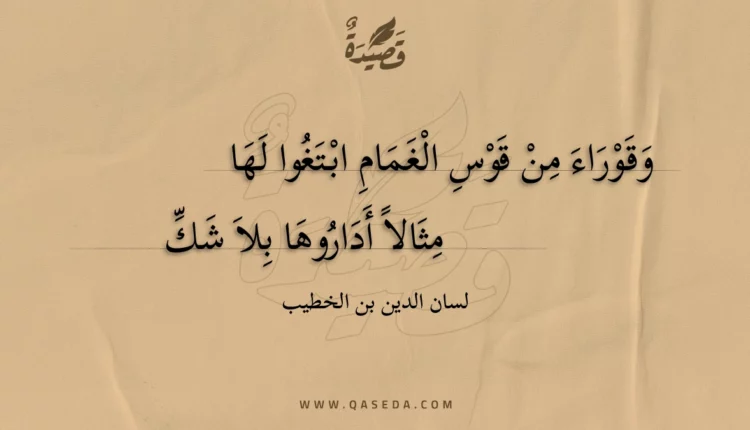 قَصِيدَةٌ
وَقَوْرَاءَ مِنْ قَوْسِ الْغَمَامِ ابْتَغُوا لَهَا
مِثَالاً أَدَارُوهَا بِلاَ شَكِّ
لسان الدين بن الخطيب
WWW.QASEDA.COM